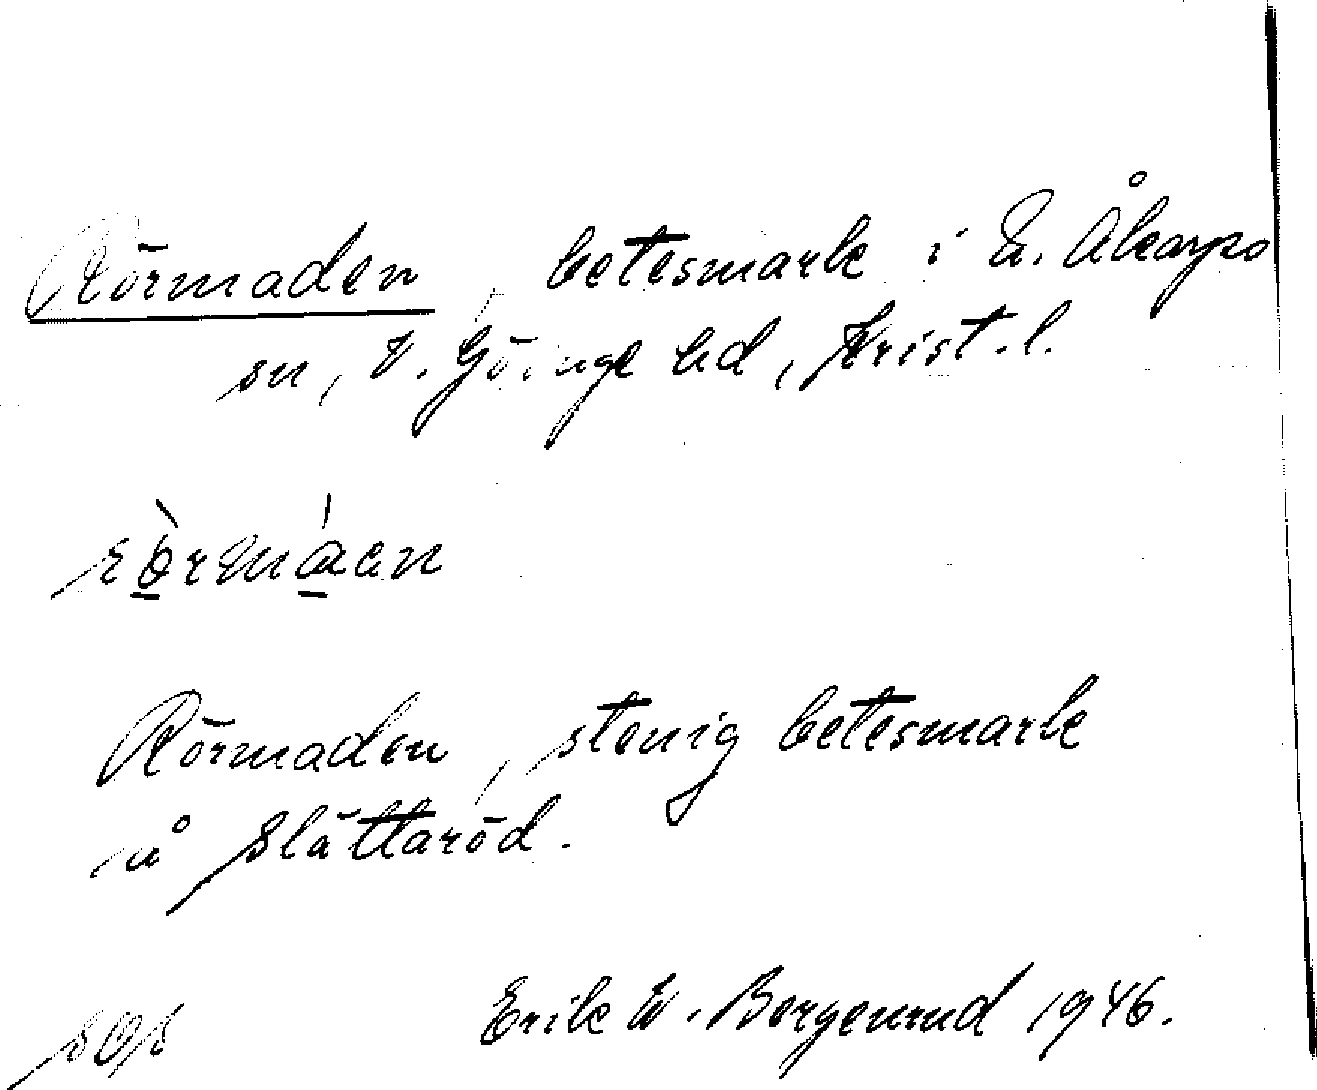 Rörmaden, betesmark i V. Åkarps
sn, V. Göinge hd, Krist. l.
rò̱rmá̱en
Rörmaden, stenig betesmark
å Slättaröd.
SOS Erik W. Borgenrud 1946.